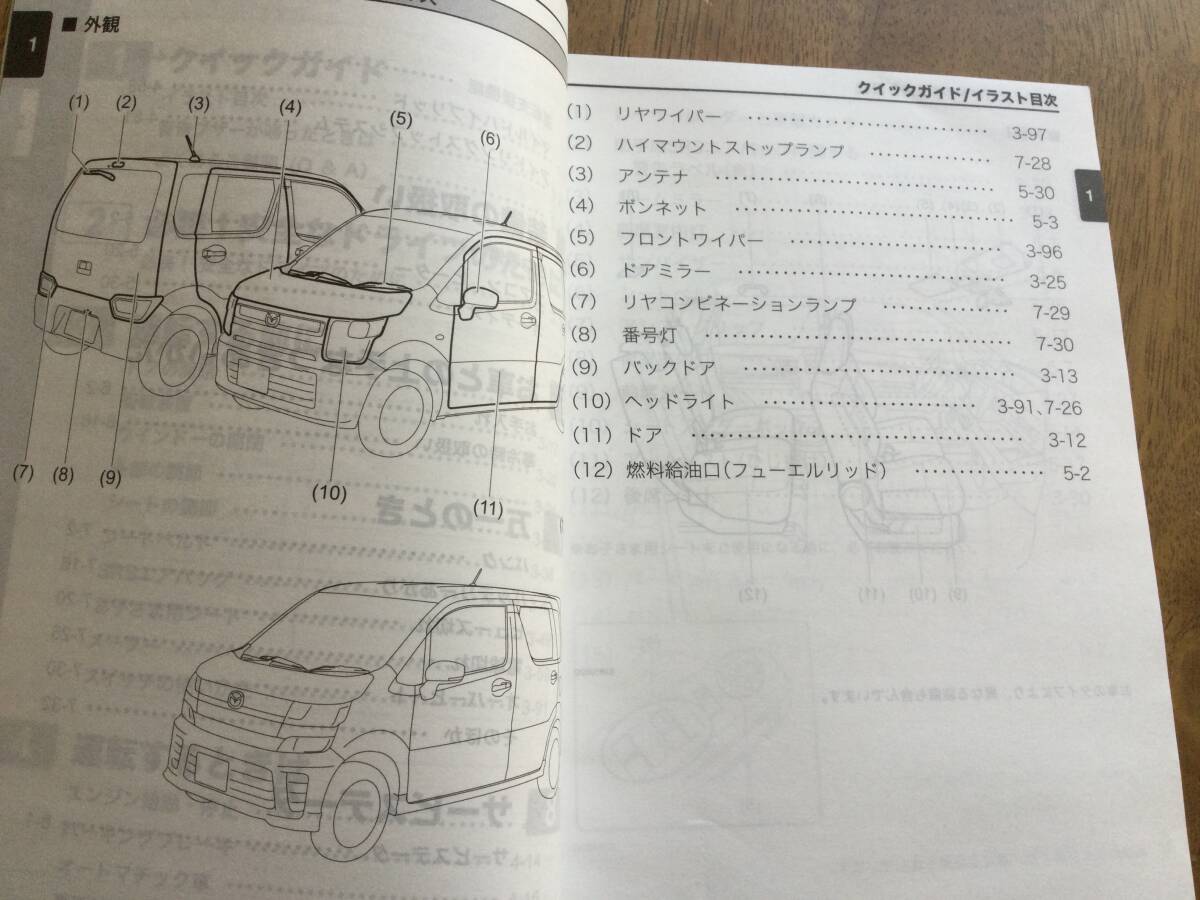 1
■ 外観
(1)
(2)
(3)
(4)
(5)
(6)
(7)
(8)
(9)
(10)
(11)
クイックガイド/イラスト目次
(1) リヤワイパー ……………………………… 3-97
(2) ハイマウントストップランプ ……………… 7-28
(3) アンテナ ……………………………… 5-30
(4) ボンネット ……………………………… 5-3
(5) フロントワイパー ……………………………… 3-96
(6) ドアミラー ……………………………… 3-25
(7) リヤコンビネーションランプ ……………… 7-29
(8) 番号灯 ……………………………… 7-30
(9) バックドア ……………………………… 3-13
(10) ヘッドライト ……………………… 3-91、7-26
(11) ドア ……………………………… 3-12
(12) 燃料給油口(フューエルリッド) ……………… 5-2
1